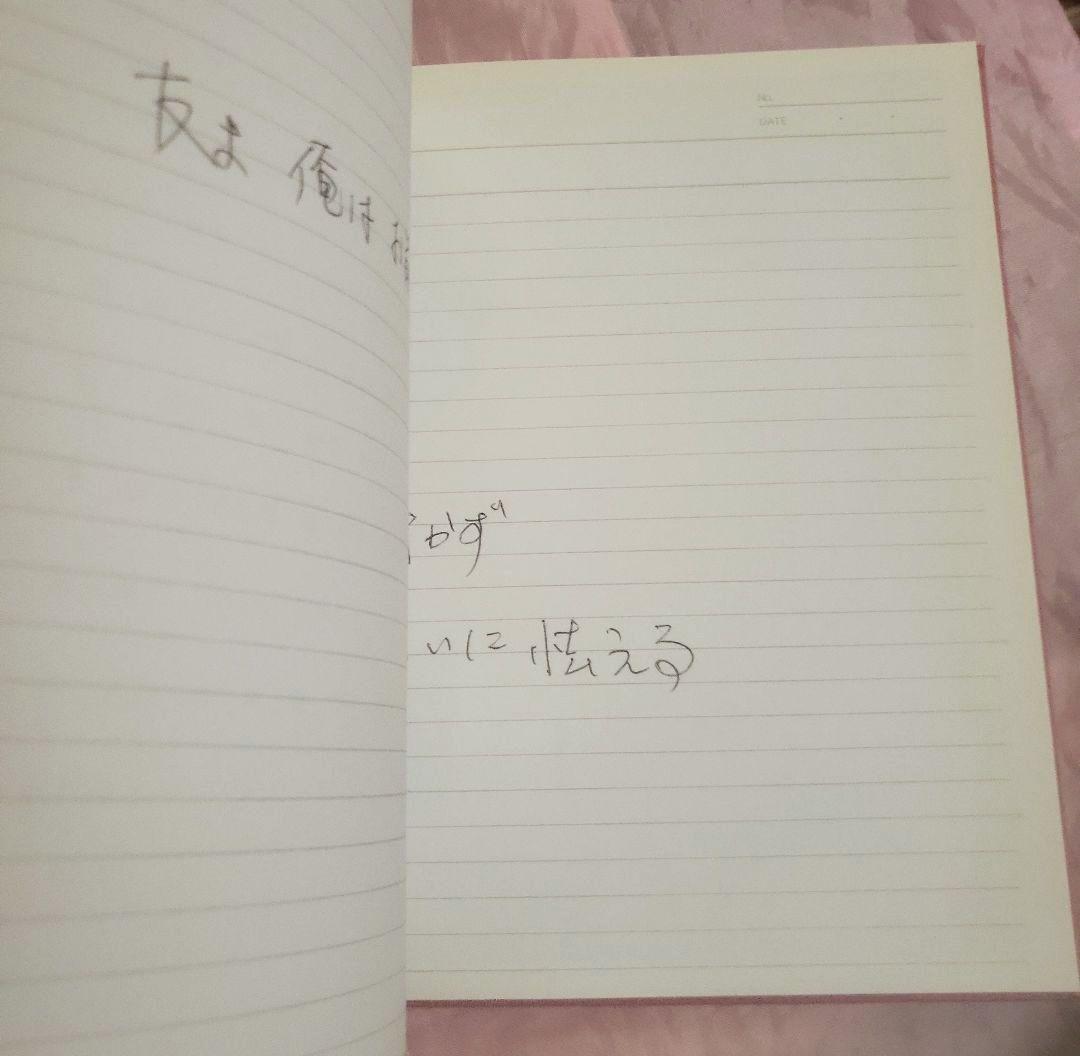 友よ 俺は
NO.
DATE
かず
いに怯える